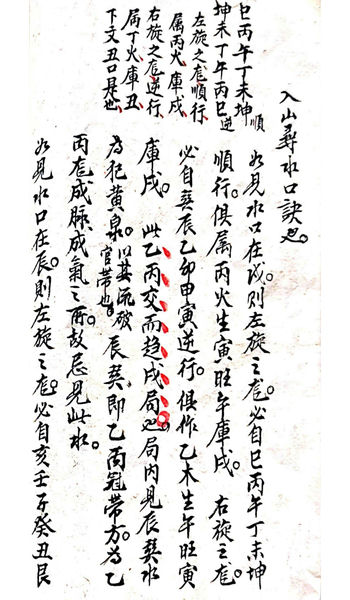 入山尋水口訣也。
巳丙午丁未坤 順
坤未丁午丙巳 逆
左旋之龙順行、
属丙火、庫戌、
右旋之龙逆行、
属丁火庫丑、
下文丑口是也、
如見水口在戌。則左旋之龙。必自巳丙午丁未坤
順行。俱属丙火生寅旺午庫戌。右旋之龙。
必自巽辰乙卯甲寅逆行。俱作乙木生午旺寅
庫戌。此乙丙交而趋戌局也。局內見辰巽水
為犯黄泉。以其流破官带也。辰巽即乙丙冠带方。為乙
丙龙成脉成氣之所。故忌見此水。
如見水口在辰。則左旋之龙。必自亥壬子癸丑艮